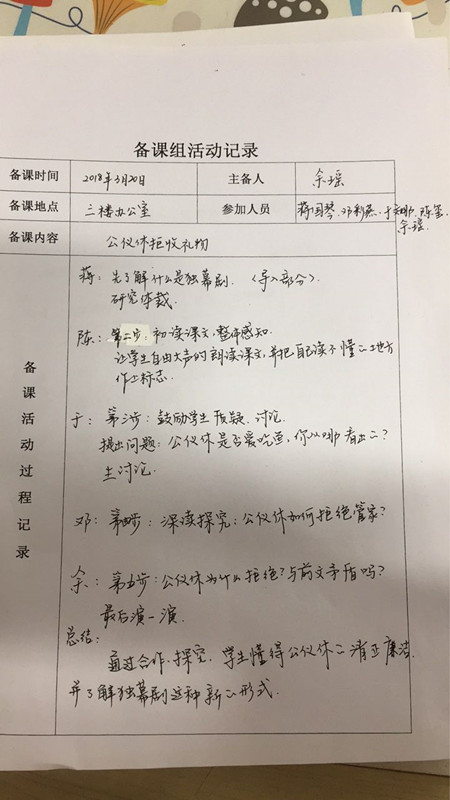 备课组活动记录
备课时间 2018年3月20日 主备人 余瑶
备课地点 三楼办公室 参加人员 蒋国琴、邓利燕、于 陈
余瑶
备课内容 公仪休拒收礼物
备课活动过程记录
蒋：先了解什么是独幕剧.（导入部分）.
研究体裁.
陈：第二步：初读课文，整体感知.
让学生自由大声的朗读课文，并把自己读不懂的地方
作上标志.
于：第三步：鼓励学生质疑.讨论.
提出问题：公仪休是否爱吃鱼，你从哪看出的？
生讨论.
邓：第四步：深读探究：公仪休如何拒绝管家？
余：第五步：公仪休为什么拒绝？与前文矛盾吗？
最后演一演.
总结：
通过合作.探究，学生懂得公仪休的清正廉洁.
并了解独幕剧这种新的形式.